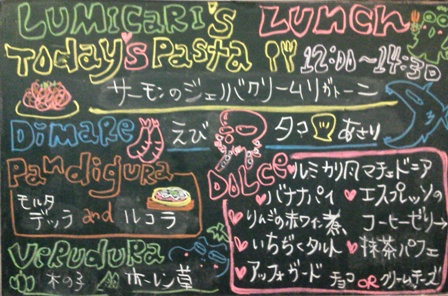 LUMICARI'S LUNCH
TODAY'S PASTA 12:00~14:30
サーモンのジェノバクリームリガトーニ
DiMARE えび タコ あさり
Pandigura
モルタデッラ and ルコラ
VERUDURA
木の子 ホーレン草
DOLCE
ルミカリ風マチェドニア
バナナパイ
エスプレッソのコーヒーゼリー
りんごの赤ワイン煮
いちぢくタルト
抹茶パフェ
アッフォガード チョコ OR クリームチーズ